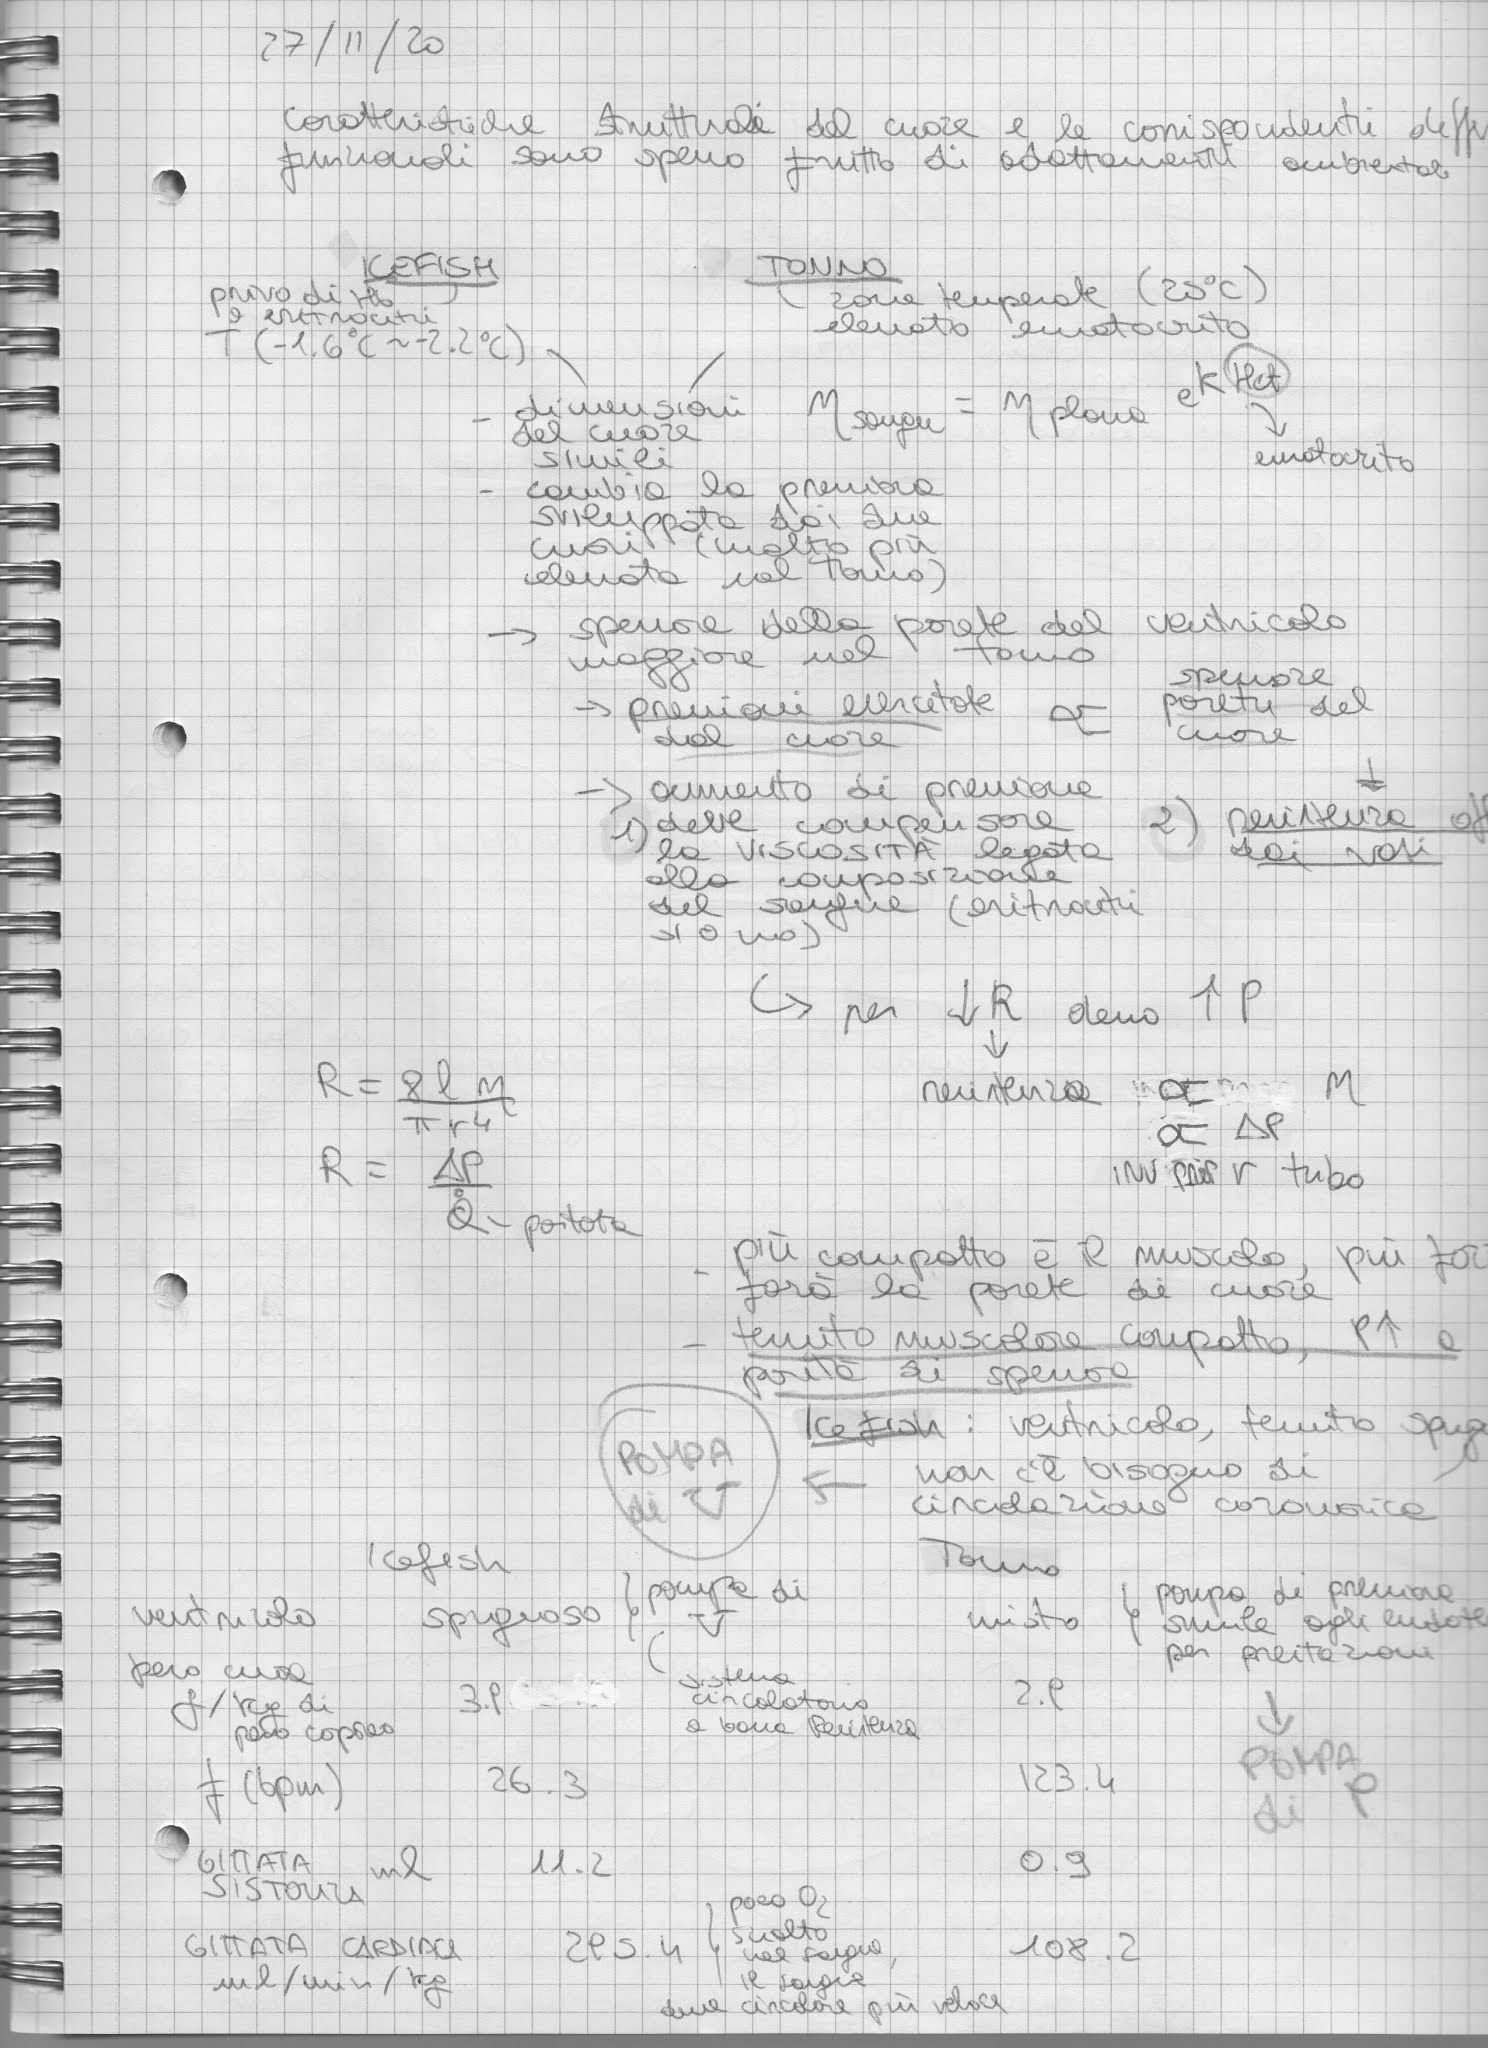 27/11/20
caratteristiche strutturali del cuore e le corrispondenti
funzionali sono spesso frutto di adattamenti ambientali
ICEFISH
TONNO
privo di Hb
e eritrociti
T (-1.6°C ~ -2.2°C)
zone temperate (25°C)
elevato ematocrito
- dimensioni
del cuore
simili
η sangue = η plasma e^K Hct
ematocrito
- cambia la pressione
sviluppata dai due
cuori (molto più
elevata nel tonno)
→ spessore della parete del ventricolo
maggiore nel tonno
→ pressioni esercitate
dal cuore
∝ spessore
pareti del
cuore
→ aumento di pressione
1) deve compensare
la VISCOSITÀ legata
alla composizione
del sangue (eritrociti
sì o no)
2) resistenza
dai vasi
↳ per ↓R devo ↑P
R = 8 l η / π r4
R = ΔP / Q̇ - portata
resistenza ∝ η
∝ ΔP
INV PROP r tubo
- più compatto è il muscolo, più
farà la parete di cuore
- tessuto muscolare compatto, P↑ a
parità di spessore
Icefish: ventricolo, tessuto
non c'è bisogno di
circolazione coronarica
←
POMPA
di V
Icefish
Tonno
ventricolo spugnoso { pompa di V
misto { pompa di pressione
simile agli
per prestazioni
peso cuore
g/kg di
peso corporeo
3.9
sistema
circolatorio
a bassa resistenza
2.9
↓
POMPA
di P
f (bpm) 26.3 123.4
GITTATA
SISTOLICA ml 11.2 0.9
GITTATA CARDIACA
ml/min/kg
295.4
poco O2
sciolto
nel sangue,
il sangue
deve circolare più veloce
108.2